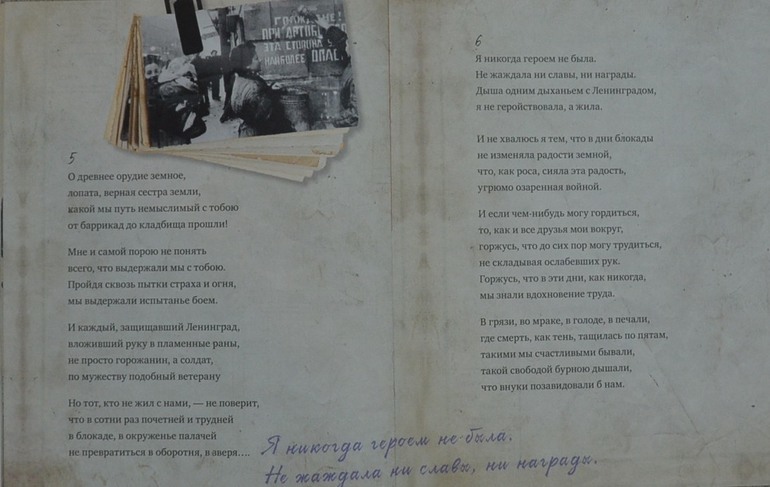 ГРАЖДАНЕ!
ПРИ АРТОБС
ЭТА СТОРОНА
НАИБОЛЕЕ ОПАС
5
О древнее орудие земное,
лопата, верная сестра земли,
какой мы путь немыслимый с тобою
от баррикад до кладбища прошли!
Мне и самой порою не понять
всего, что выдержали мы с тобою.
Пройдя сквозь пытки страха и огня,
мы выдержали испытанье боем.
И каждый, защищавший Ленинград,
вложивший руку в пламенные раны,
не просто горожанин, а солдат,
по мужеству подобный ветерану
Но тот, кто не жил с нами, — не поверит,
что в сотни раз почетней и трудней
в блокаде, в окруженье палачей
не превратиться в оборотня, в зверя….
6
Я никогда героем не была.
Не жаждала ни славы, ни награды.
Дыша одним дыханьем с Ленинградом,
я не геройствовала, а жила.
И не хвалюсь я тем, что в дни блокады
не изменяла радости земной,
что, как роса, сияла эта радость,
угрюмо озаренная войной.
И если чем-нибудь могу гордиться,
то, как и все друзья мои вокруг,
горжусь, что до сих пор могу трудиться,
не складывая ослабевших рук.
Горжусь, что в эти дни, как никогда,
мы знали вдохновение труда.
В грязи, во мраке, в голоде, в печали,
где смерть, как тень, тащилась по пятам,
такими мы счастливыми бывали,
такой свободой бурною дышали,
что внуки позавидовали б нам.
Я никогда героем не была.
Не жаждала ни славы, ни награды.